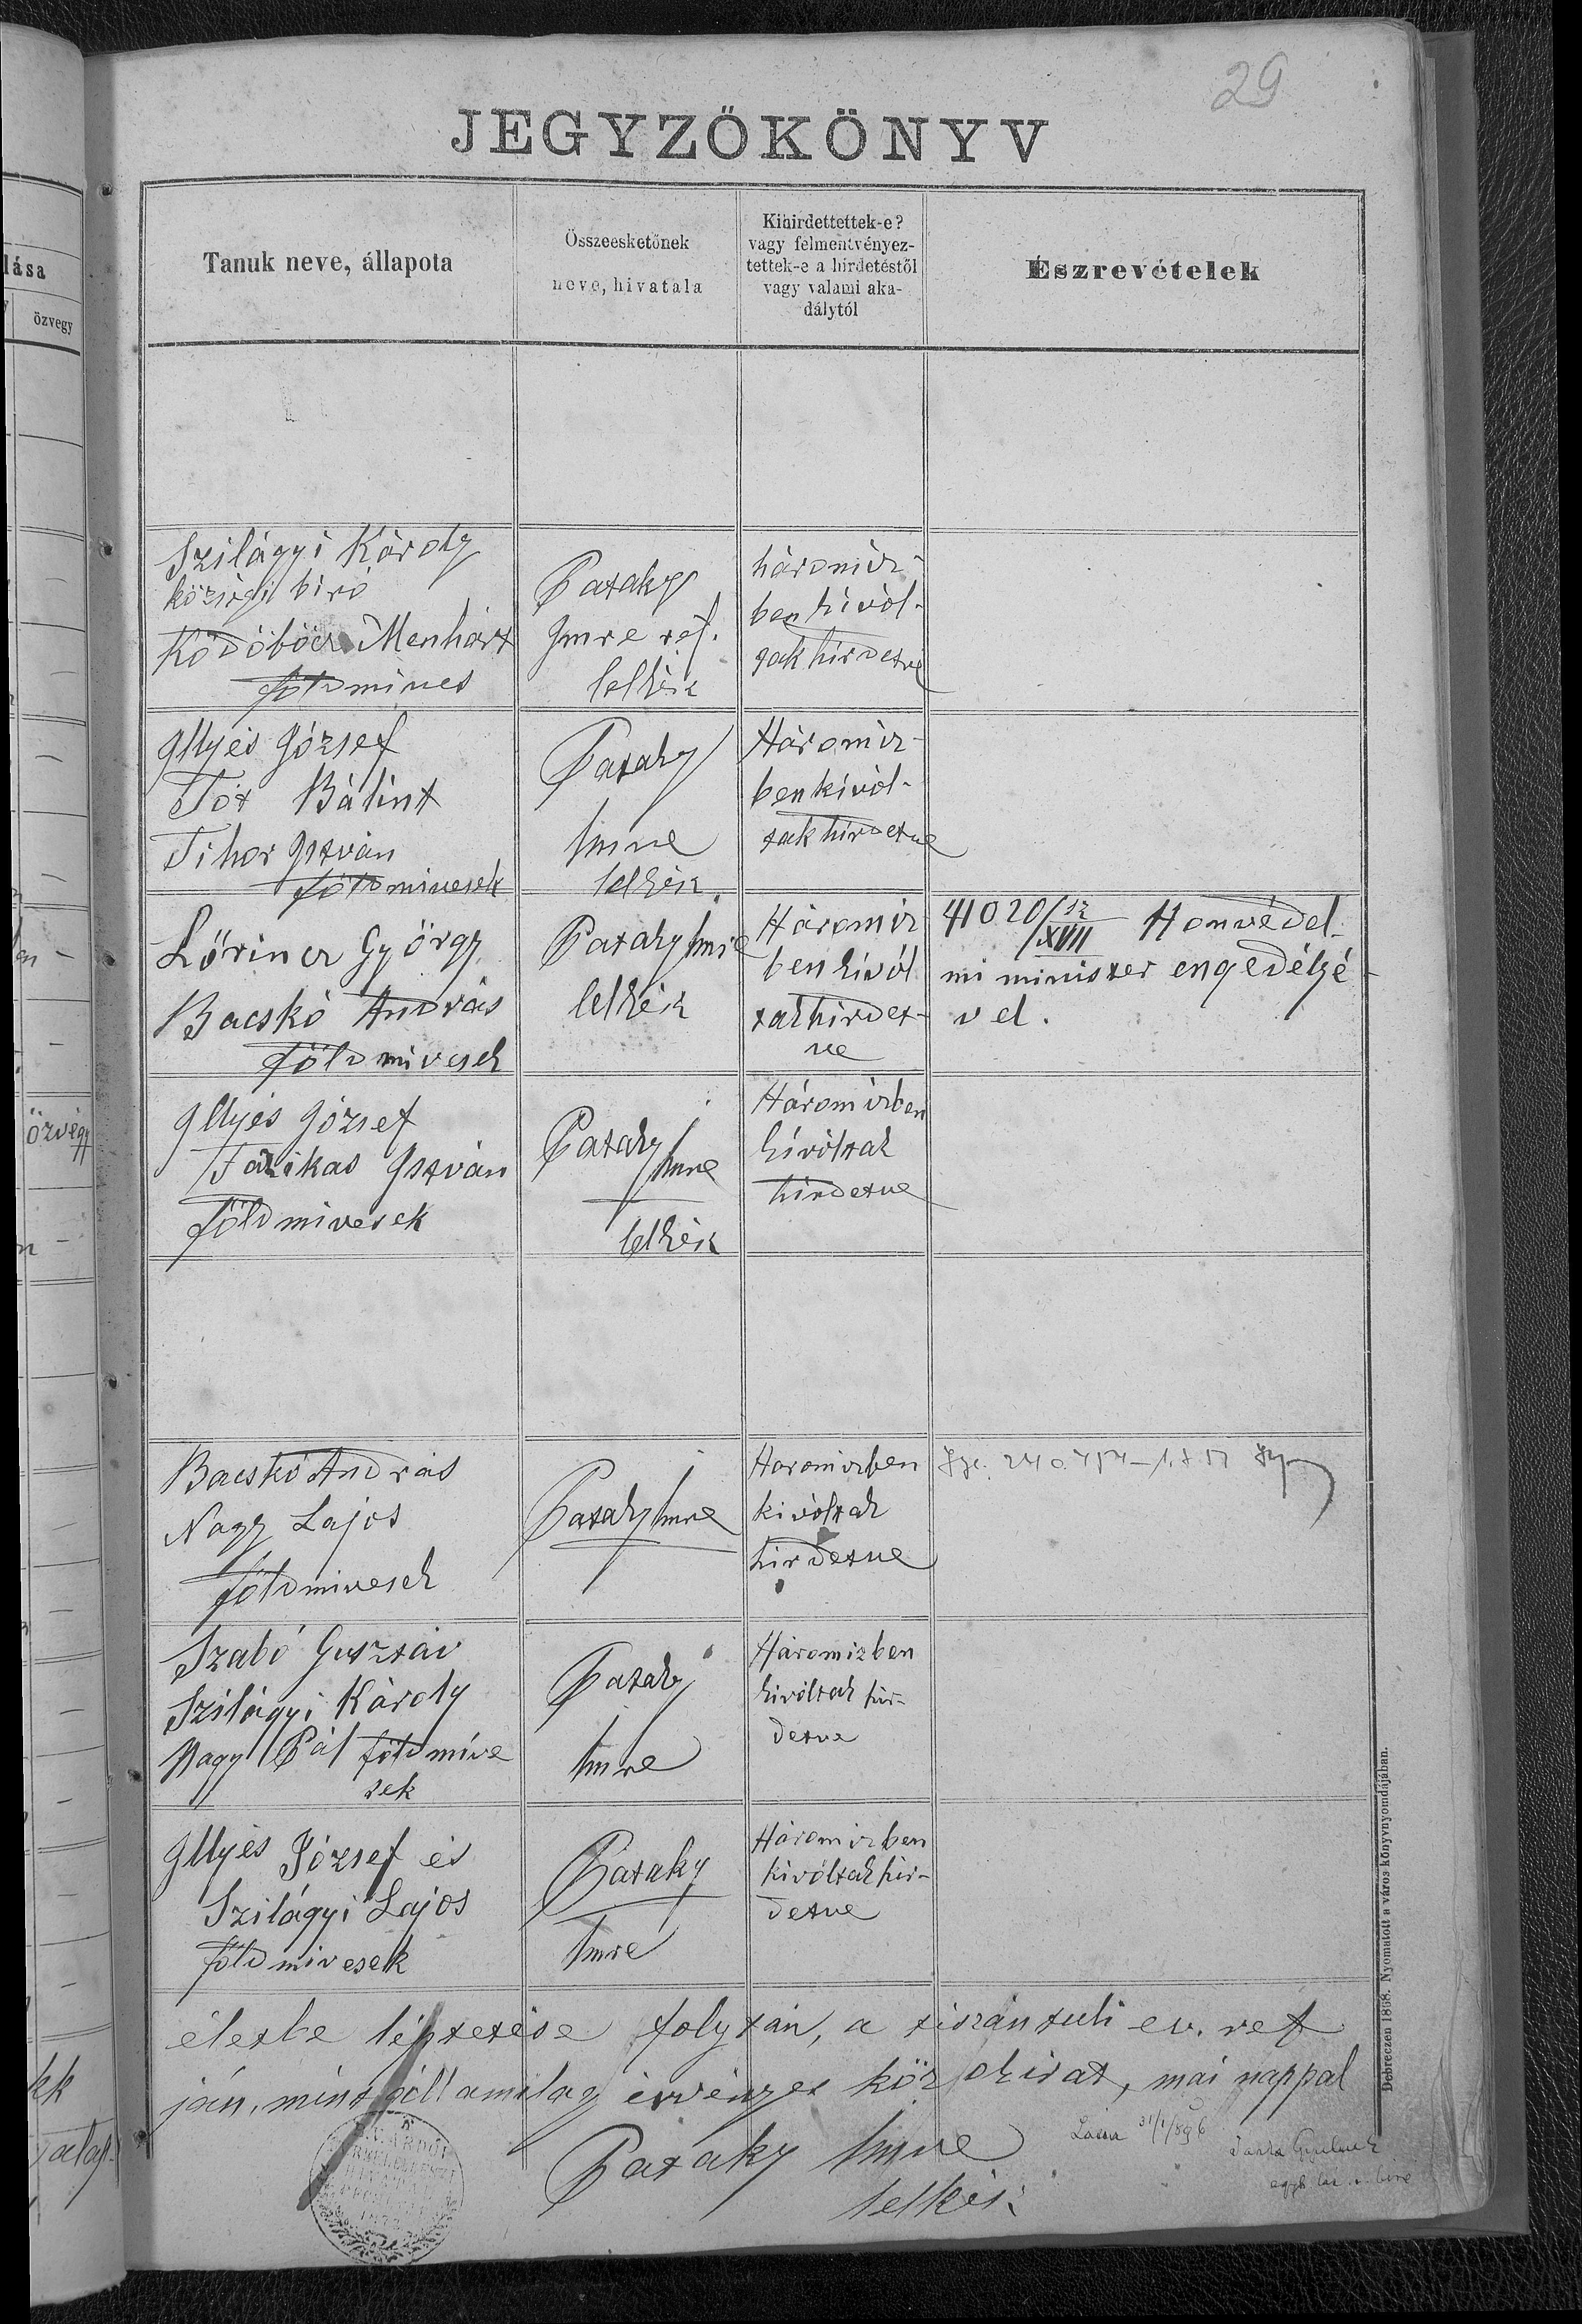 29
JEGYZŐKÖNYV
lása
özvegy
Tanuk neve, állapota
Összeesketőnek
neve, hivatala
Kihirdettettek-e?
vagy felmentvényez-
tettek-e a hirdetéstől
vagy valami aka-
dálytól
Észrevételek
Szilágyi Károly
községi biró
Ködöböcz Menhárt
földmives
Pataky
Imre ref.
lelkész
háromiz-
ben kivól-
tak hirdetve
Illyés József
Tót Bálint
Tihor István
földmivesek
Pataky
Imre
lelkész.
Háromiz-
ben kivól-
tak hirdetve
Lőrincz György
Bacskó András
földmivesek
Pataky Imre
lelkész
Háromiz
ben kivól
tak hirdet-
ve
41020/12/XVIII Honvédel-
mi miniszter engedélyé-
vel.
özvegy
Illyés József
Farkas István
földmivesek
Pataky Imre
lelkész
Háromizben
kivóltak
hirdetve
Bacskó András
Nagy Lajos
földmivesek
Pataky Imre
Haromizben
kivóltak
hirdetve
Szabó Gusztáv
Szilágyi Károly
Nagy Pál földmive
sek
Pataky
Imre
Háromizben
kivóltak hir-
detve
Illyés József és
Szilágyi Lajos
földmivesek
Pataky
Imre
Háromizben
kivóltak hir-
detve
életbe léptetése folytán, a tiszántuli ev. ref
ján, mint államilag érvényes közokirat, mai nappal
Pataky Imre
lelkész
Láttam 31/1/896
Debreczen 1888. Nyomatott a város könyvnyomdájában.